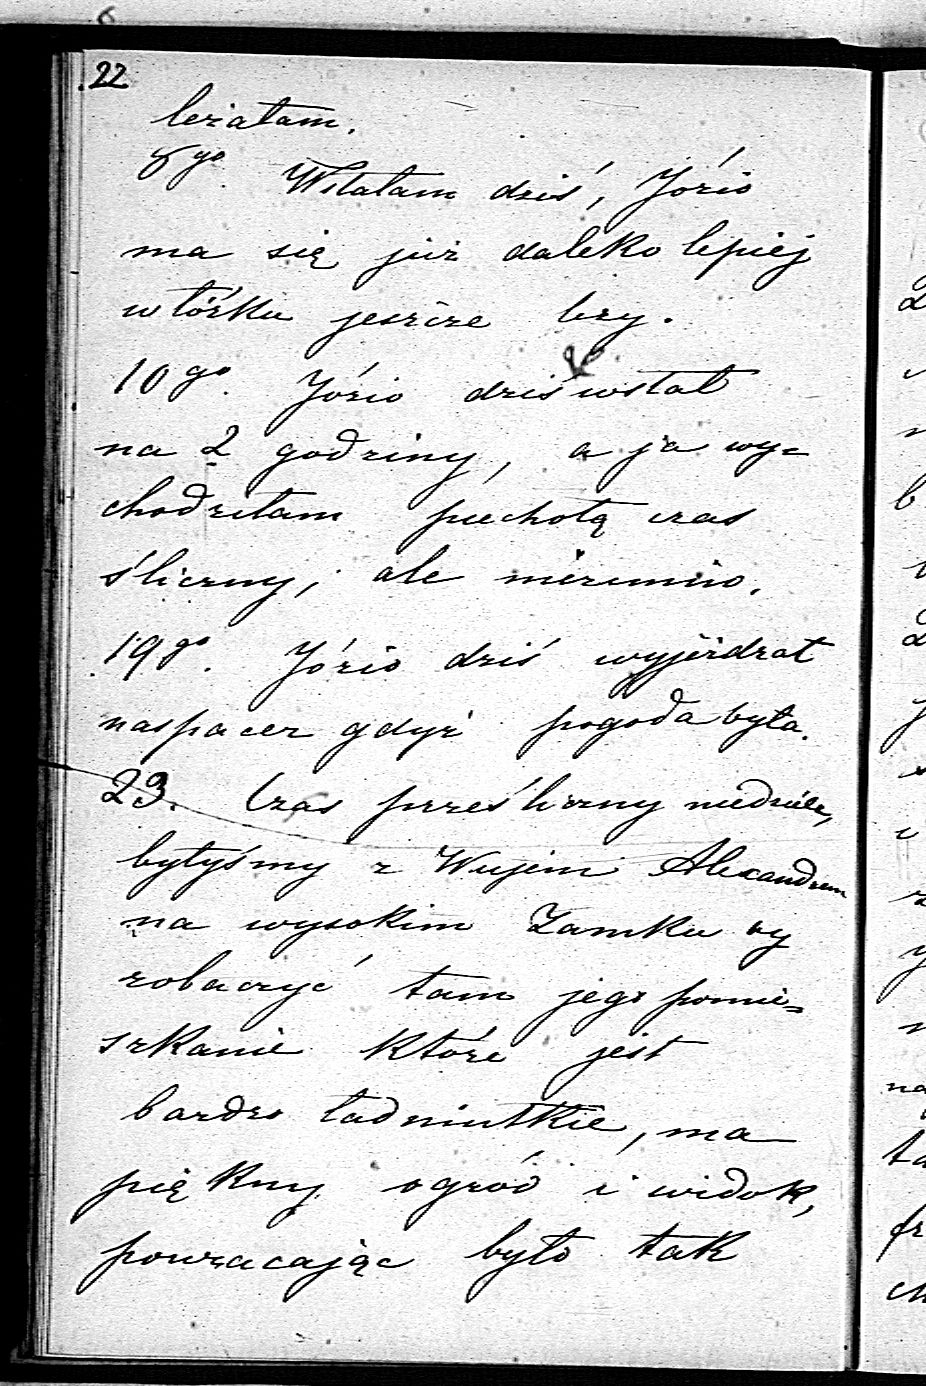 22
leżałam.
8go. Wstałam dziś, Józio
ma się już daleko lepiej
w łóżku jeszcze leży.
10go. Józio dziś wstał
na 2 godziny, a ja wy=
chodziłam piechotą czas
śliczny; ale zimno.
19go. Józio dziś wyjeżdżał
na spacer gdyż pogoda była.
23. Czas prześliczny niedziela,
byłyśmy z Wujem Alexandrem
na wysokim Zamku by
zobaczyć tam jego pomie=
szkanie które jest
bardzo ładniutkie, ma
piękny ogród i widok,
powracając było tak